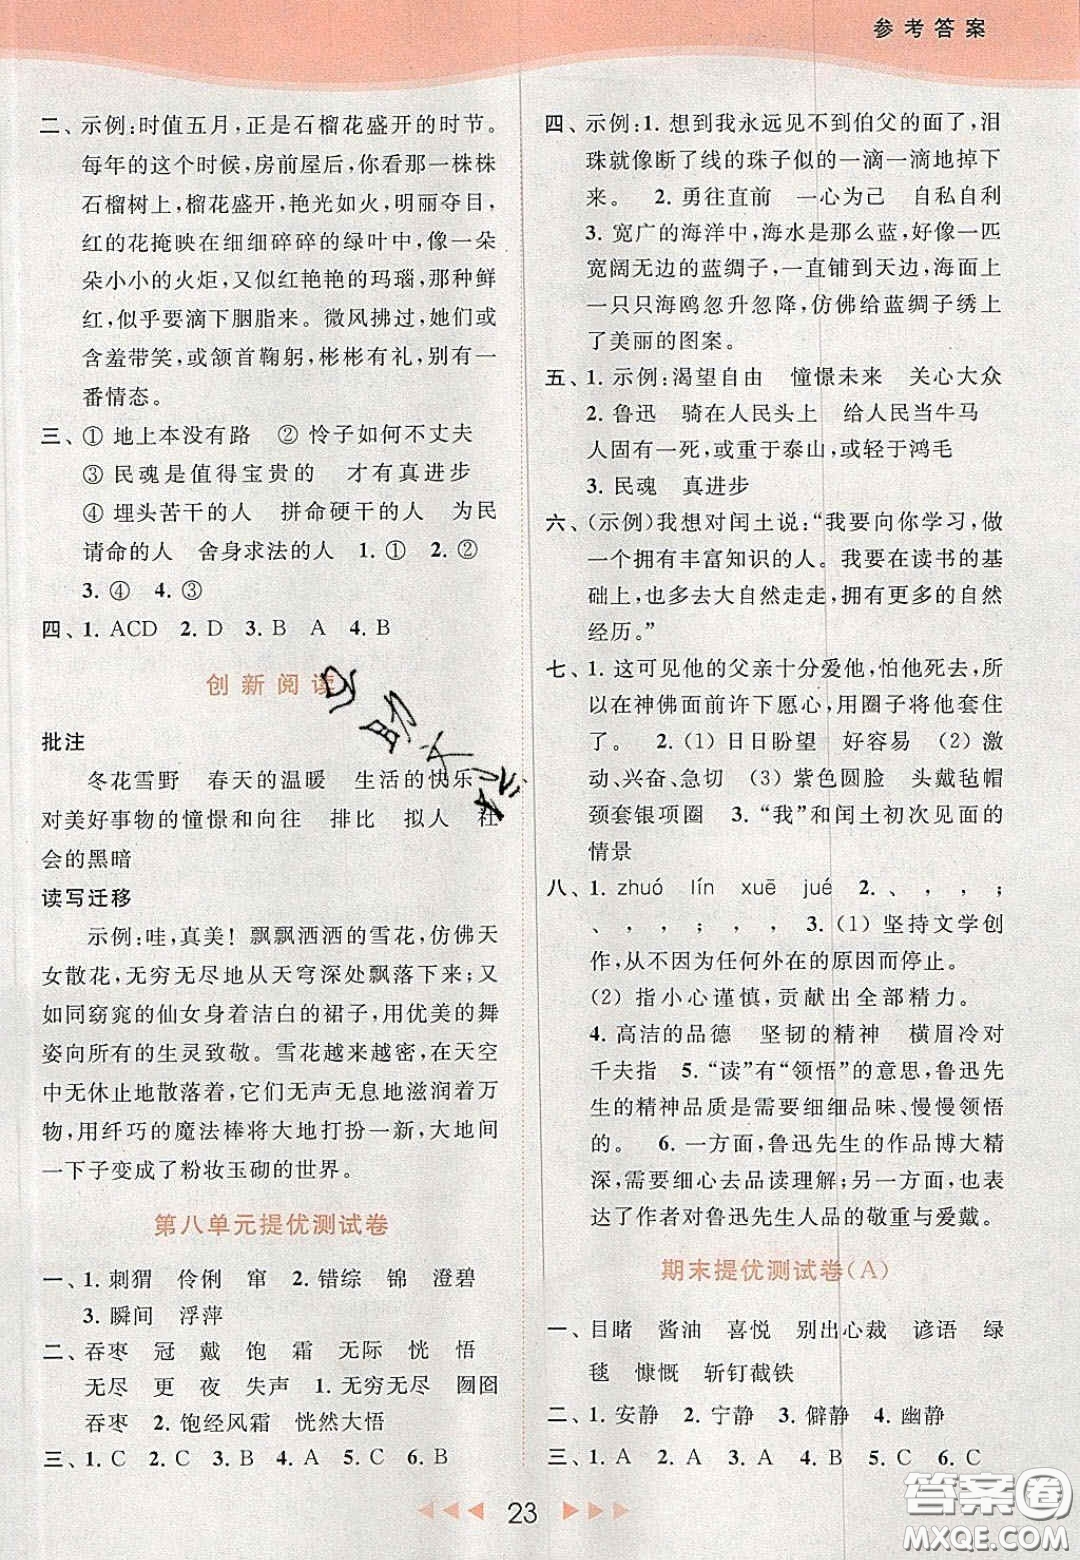 参考答案
二、示例:时值五月,正是石榴花盛开的时节。
每年的这个时候,房前屋后,你看那一株株
石榴树上,榴花盛开,艳光如火,明丽夺目,
红的花掩映在细细碎碎的绿叶中,像一朵
朵小小的火炬,又似红艳艳的玛瑙,那种鲜
红,似乎要滴下胭脂来。微风拂过,她们或
含羞带笑,或颔首鞠躬,彬彬有礼,别有一
番情态。
三、① 地上本没有路 ② 怜子如何不丈夫
③ 民魂是值得宝贵的 才有真进步
④ 埋头苦干的人 拼命硬干的人 为民
请命的人 舍身求法的人 1. ① 2. ②
3. ④ 4. ③
四、1. ACD 2. D 3. B A 4. B
创新阅读
批注
冬花雪野 春天的温暖 生活的快乐
对美好事物的憧憬和向往 排比 拟人 社
会的黑暗
读写迁移
示例:哇,真美!飘飘洒洒的雪花,仿佛天
女散花,无穷无尽地从天穹深处飘落下来;又
如同窈窕的仙女身着洁白的裙子,用优美的舞
姿向所有的生灵致敬。雪花越来越密,在天空
中无休止地散落着,它们无声无息地滋润着万
物,用纤巧的魔法棒将大地打扮一新,大地间
一下子变成了粉妆玉砌的世界。
第八单元提优测试卷
一、1. 刺猬 伶俐 窜 2. 错综 锦 澄碧
3. 瞬间 浮萍
二、吞枣 冠 戴 饱 霜 无际 恍 悟
无尽 更 夜 失声 1. 无穷无尽 囫囵
吞枣 2. 饱经风霜 恍然大悟
三、1. C 2. B 3. B 4. A 5. C 6. B
四、示例:1. 想到我永远见不到伯父的面了,泪
珠就像断了线的珠子似的一滴一滴地掉下
来。 2. 勇往直前 一心为己 自私自利
3. 宽广的海洋中,海水是那么蓝,好像一匹
宽阔无边的蓝绸子,一直铺到天边,海面上
一只只海鸥忽升忽降,仿佛给蓝绸子绣上
了美丽的图案。
五、1. 示例:渴望自由 憧憬未来 关心大众
2. 鲁迅 骑在人民头上 给人民当牛马
人固有一死,或重于泰山,或轻于鸿毛
3. 民魂 真进步
六、(示例)我想对闰土说:“我要向你学习,做
一个拥有丰富知识的人。我要在读书的基
础上,也多去大自然走走,拥有更多的自然
经历。”
七、1. 这可见他的父亲十分爱他,怕他死去,所
以在神佛面前许下愿心,用圈子将他套住
了。 2. (1) 日日盼望 好容易 (2) 激
动、兴奋、急切 (3) 紫色圆脸 头戴毡帽
颈套银项圈 3. “我”和闰土初次见面的
情景
八、1. zhuó lín xuē jué 2. 、 , , ;
、 , , , ; , , 3. (1) 坚持文学创
作,从不因为任何外在的原因而停止。
(2) 指小心谨慎,贡献出全部精力。
4. 高洁的品德 坚韧的精神 横眉冷对
千夫指 5. “读”有“领悟”的意思,鲁迅先
生的精神品质是需要细细品味、慢慢领悟
的。 6. 一方面,鲁迅先生的作品博大精
深,需要细心去品读理解;另一方面,也表
达了作者对鲁迅先生人品的敬重与爱戴。
期末提优测试卷(A)
一、目睹 酱油 喜悦 别出心裁 谚语 绿
毯 慷慨 斩钉截铁
二、1. 安静 2. 宁静 3. 僻静 4. 幽静
三、1. A 2. A 3. B 4. C 5. C 6. C
23
答案圈
MXQE.COM